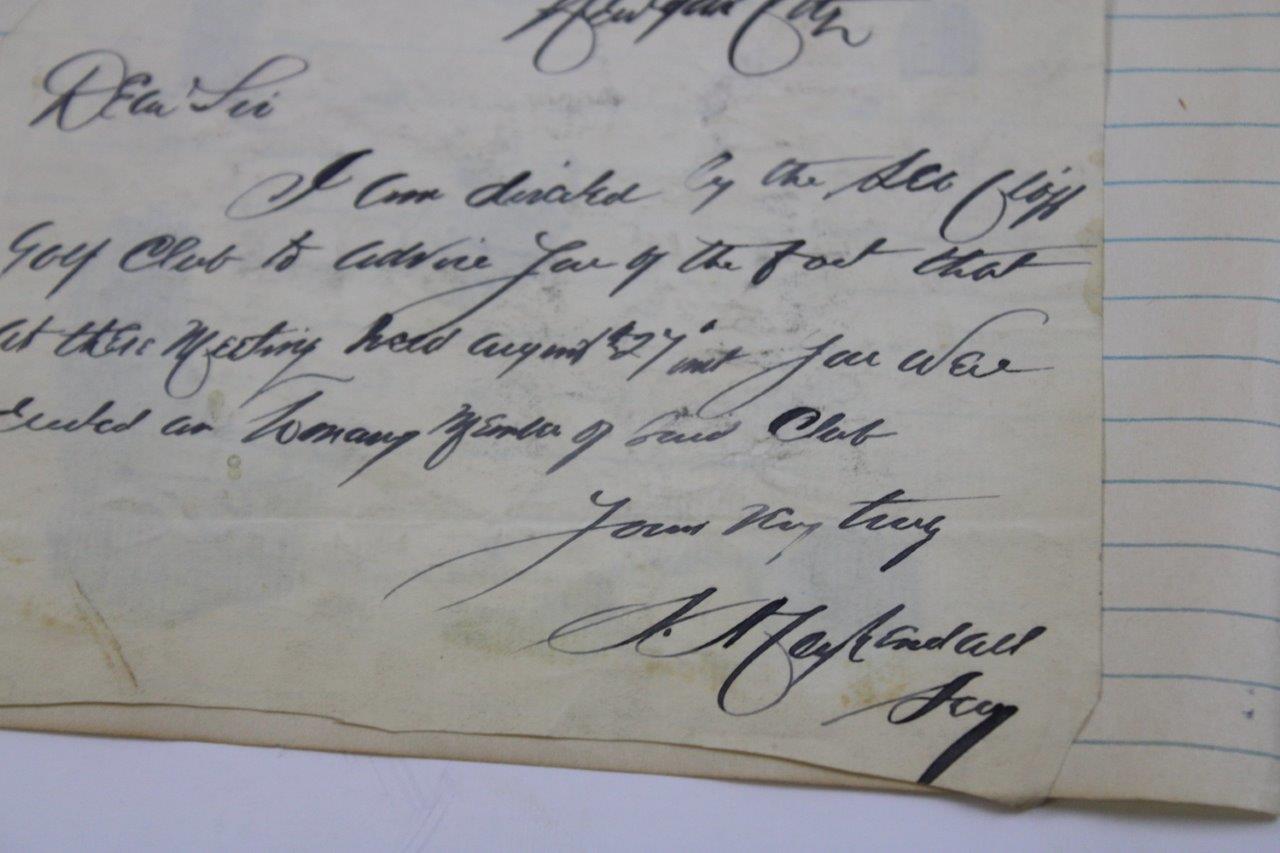 New York City
Dear Sir
I am directed by the Sea Cliff
Golf Club to advise you of the fact that
at their Meeting held august 27" inst you were
elected an honorary Member of said Club
Yours very truly
Kuykendall
Secy